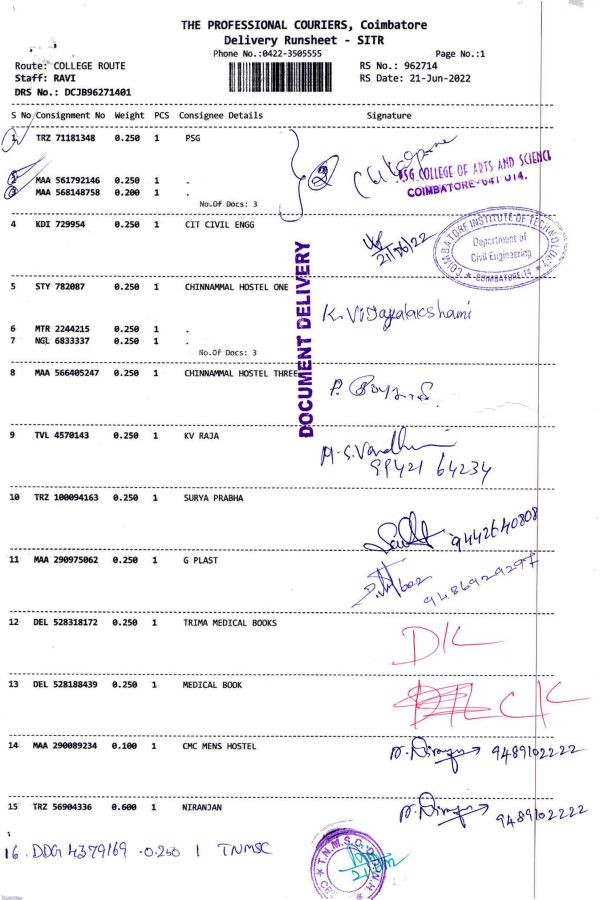 THE PROFESSIONAL COURIERS, Coimbatore
Delivery Runsheet - SITR
Phone No.:0422-3505555 Page No.:1
Route: COLLEGE ROUTE RS No.: 962714
Staff: RAVI RS Date: 21-Jun-2022
DRS No.: DCJB96271401
S No Consignment No Weight PCS Consignee Details Signature
1 TRZ 71181348 0.250 1 PSG
PSG COLLEGE OF ARTS AND SCIENCE
COIMBATORE-641 014.
2 MAA 561792146 0.250 1 .
3 MAA 568148758 0.200 1 .
No.Of Docs: 3
4 KDI 729954 0.250 1 CIT CIVIL ENGG
21/06/22
COIMBATORE INSTITUTE OF TECHNOLOGY
Department of
Civil Engineering
COIMBATORE-14
DOCUMENT DELIVERY
5 STY 782087 0.250 1 CHINNAMMAL HOSTEL ONE
K. Vijayalakshami
6 MTR 2244215 0.250 1 .
7 NGL 6833337 0.250 1 .
No.Of Docs: 3
8 MAA 566405247 0.250 1 CHINNAMMAL HOSTEL THREE
9 TVL 4570143 0.250 1 KV RAJA
M.S. Vandhu
99421 64234
10 TRZ 100094163 0.250 1 SURYA PRABHA
9442640808
11 MAA 290975062 0.250 1 G PLAST
9486929297
12 DEL 528318172 0.250 1 TRIMA MEDICAL BOOKS
DK
13 DEL 528188439 0.250 1 MEDICAL BOOK
14 MAA 290089234 0.100 1 CMC MENS HOSTEL
9489102222
15 TRZ 56904336 0.600 1 NIRANJAN
9489102222
16. DDG 4379169 .0.250 1 TNMSC